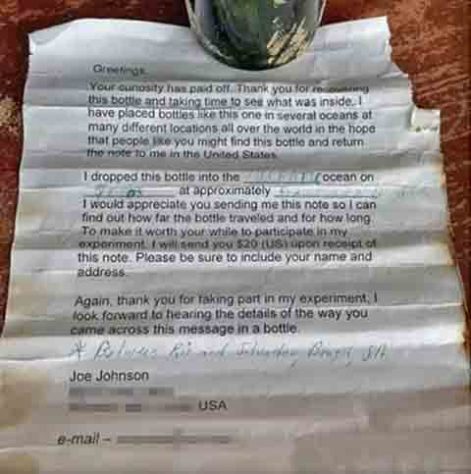 Greetings,
Your curiosity has paid off. Thank you for recovering
this bottle and taking time to see what was inside. I
have placed bottles like this one in several oceans at
many different locations all over the world in the hope
that people like you might find this bottle and return
the note to me in the United States.
I dropped this bottle into the ocean on
at approximately
I would appreciate you sending me this note so I can
find out how far the bottle traveled and for how long.
To make it worth your while to participate in my
experiment, I will send you $20 (US) upon receipt of
this note. Please be sure to include your name and
address.
Again, thank you for taking part in my experiment, I
look forward to hearing the details of the way you
came across this message in a bottle.
* Between Rio and Salvador, Brazil, SA
Joe Johnson
USA
e-mail –